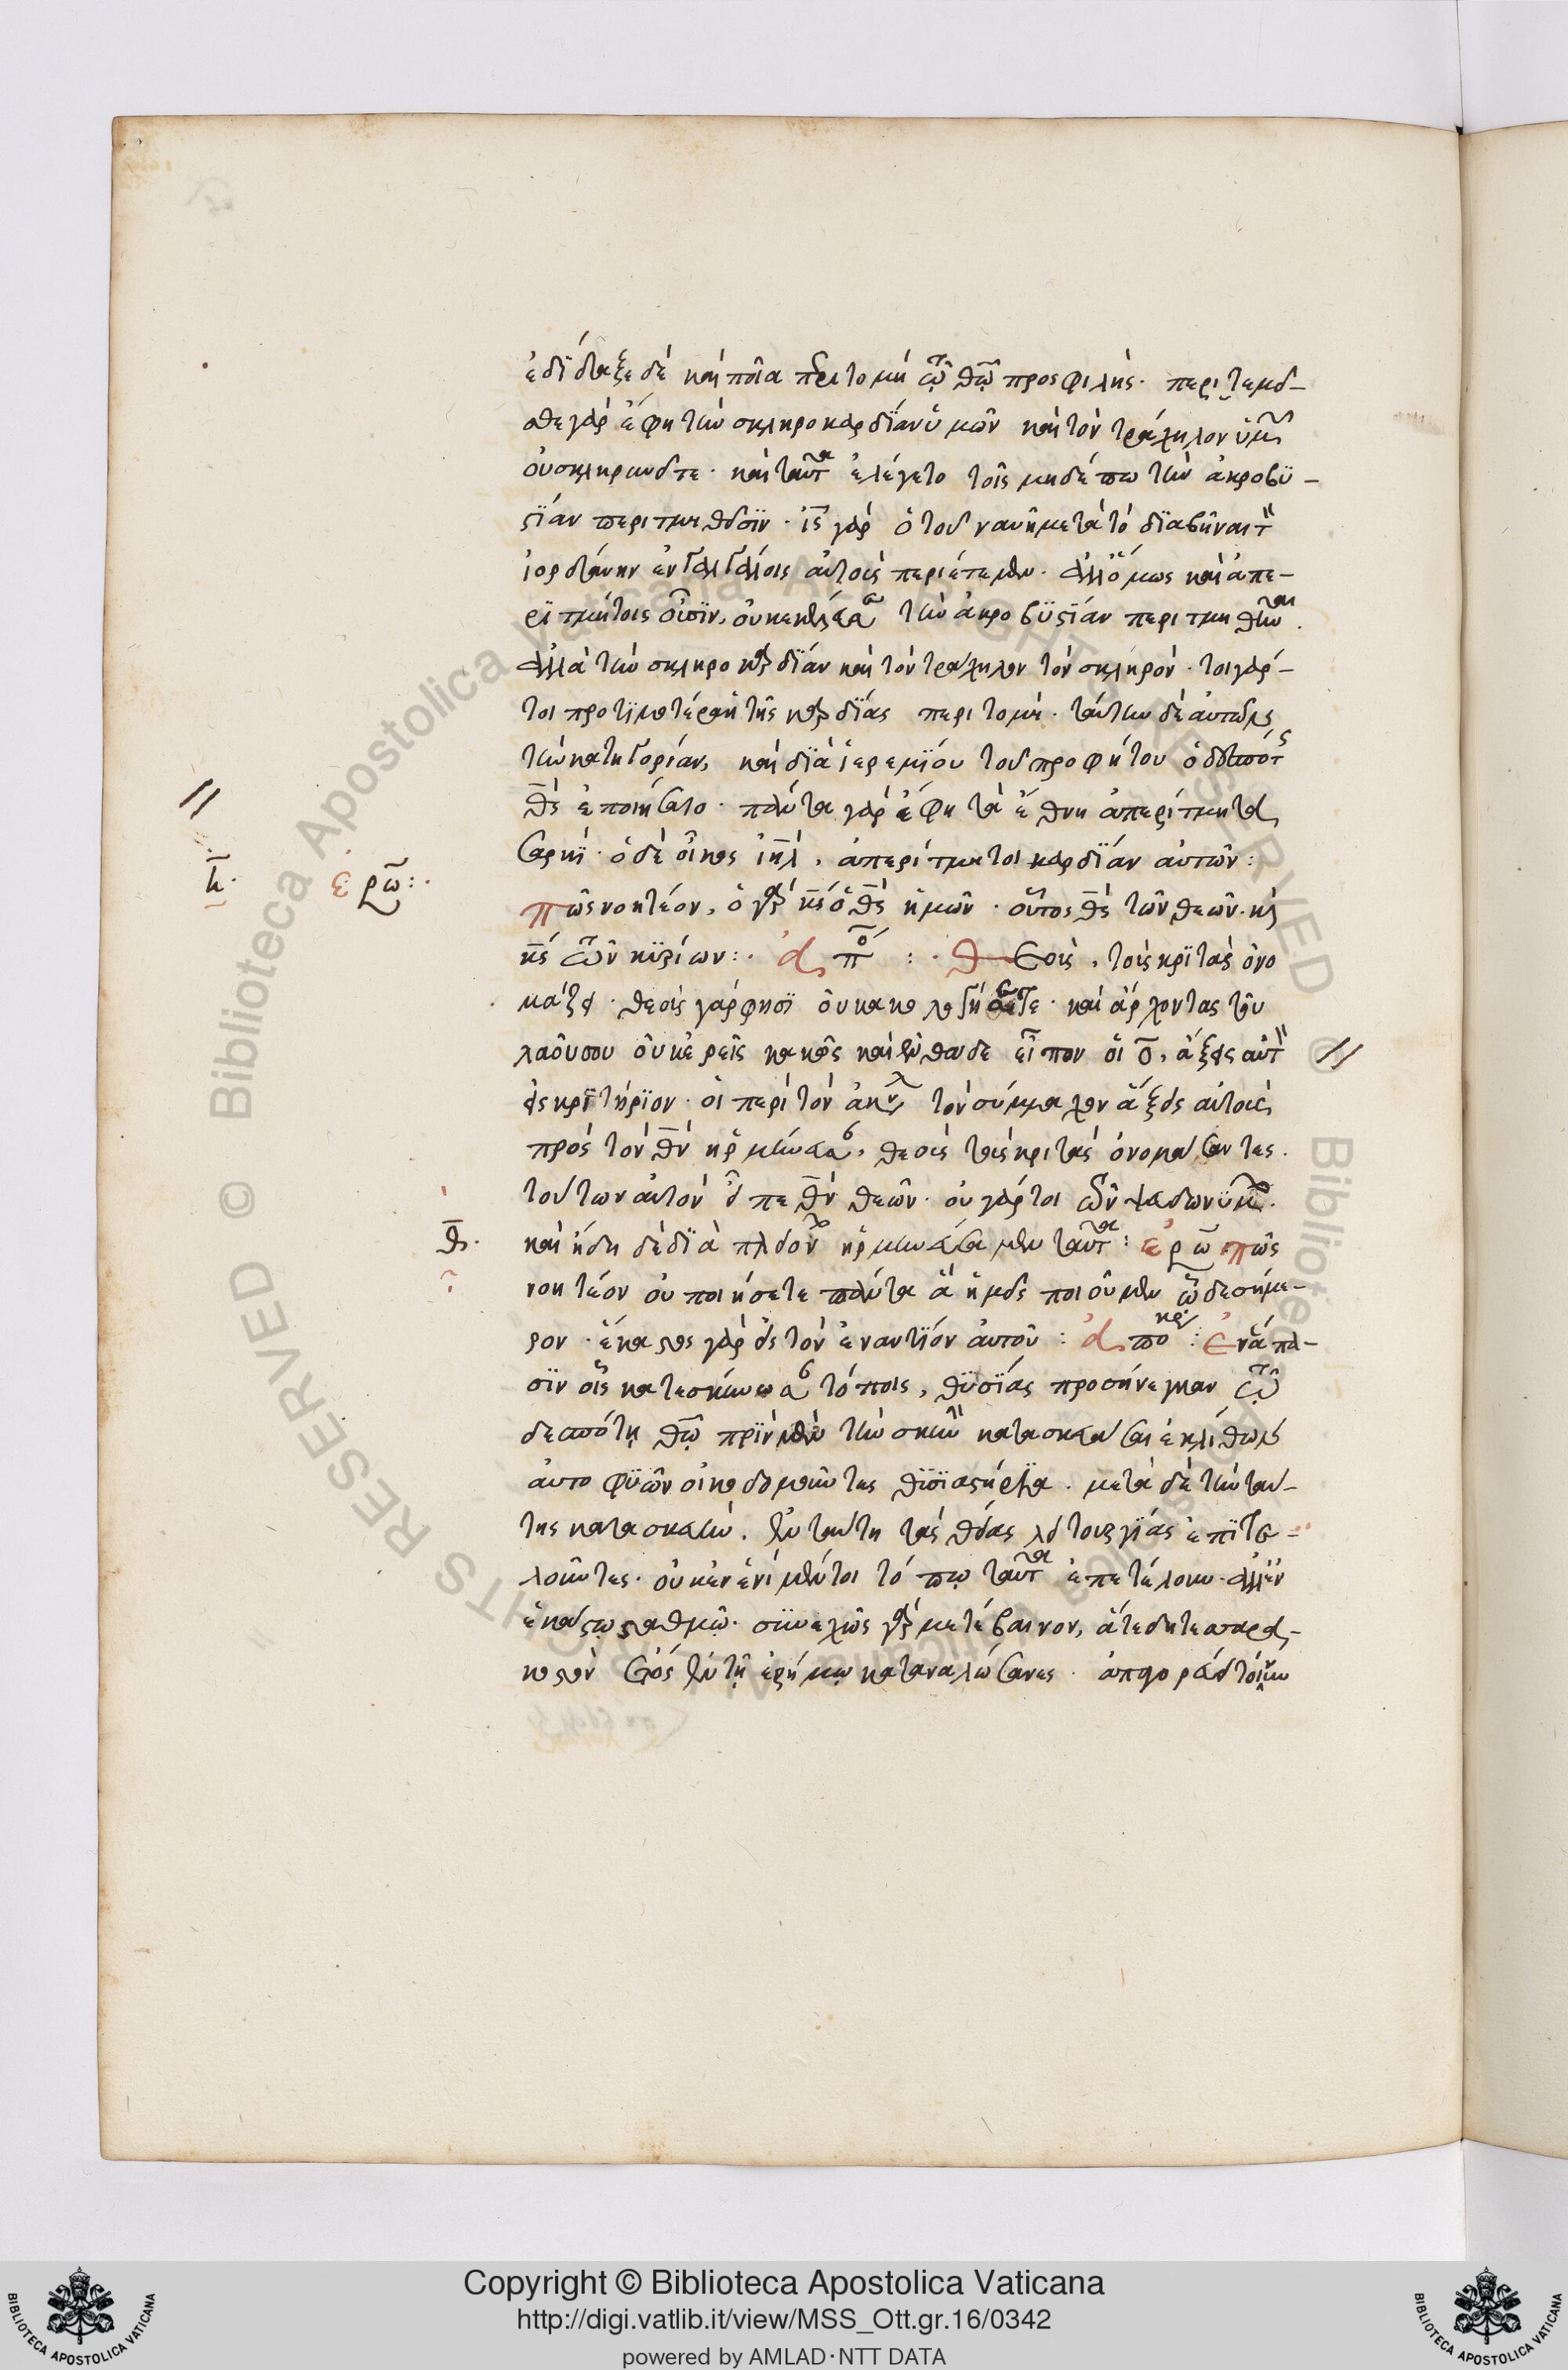 ἐδίδαξε δὲ καὶ ποῖα περιτομὴ τῷ θῷ προσφιλής. περιτεμεῖ-
σθε γάρ ἔφη τὴν σκληροκαρδίαν ὑμῶν καὶ τὸν τράχηλον ὑμῶν
οὐ σκληρυνεῖτε. καὶ ταῦτα ἐλέγετο τοῖς μηδέπω τὴν ἀκροβυ-
στίαν περιτμηθεῖσιν. ις γὰρ ὁ τοῦ ναυῆ μετὰ τὸ διαβῆναι τὸν
ἰορδάνην ἐν γαλγάλοις αὐτοὺς περιέτεμεν. ἀλλ' ὅμως καὶ ἀπε-
ριτμήτοις οὖσιν, οὐκ ἐκέλευσε τὴν ἀκροβυστίαν περιτμηθῆναι.
ἀλλὰ τὴν σκληροκαρδίαν καὶ τὸν τράχηλον τὸν σκληρόν. τοιγάρ-
τοι προτιμοτέρα ἡ τῆς καρδίας περιτομή. ταύτην δὲ αὐτῶν
τὴν κατηγορίαν, καὶ διὰ ἱερεμίου τοῦ προφήτου ὁ δεσπότης
θς ἐποιήσατο. πάντα γάρ ἔφη τὰ ἔθνη ἀπερίτμητα
σαρκί. ὁ δὲ οἶκος ιηλ, ἀπερίτμητοι καρδίαν αὐτῶν:
η. ερω:
πῶς νοητέον, ὁ γὰρ κς ὁ θς ἡμῶν. οὗτος θς τῶν θεῶν. καὶ
κς τῶν κυρίων: ἀπο: θεοὺς, τοὺς κριτὰς ὀνο
μάζει. θεοὺς γάρ φησι οὐ κακολογήσετε. καὶ ἄρχοντας τοῦ
λαοῦ σου οὐκ ἐρεῖς κακῶς καὶ ἐνθάδε εἶπον οἱ ο, ἄξεις αὐτὸν
εἰς κριτήριον. οἱ περὶ τὸν ἀκύλαν τὸν σύμμαχον ἄξεις αὐτοὺς
πρὸς τὸν θν ἡρμήνευσαν, θεοὺς τοὺς κριτὰς ὀνομάσαντες.
τούτων αὐτὸν εἶπε θν θεῶν. οὐ γάρ τοι τῶν ψευδωνύμων.
θ. καὶ ἤδη δὲ διὰ πλειόνων ἡρμηνεύσαμεν ταῦτα: ερω πῶς
νοητέον οὐ ποιήσετε πάντα ἃ ἡμεῖς ποιοῦμεν ὧδε σήμε-
ρον. ἕκαστος γὰρ εἰς τὸν ἐναντίον αὐτοῦ: ἀποκρ: ἐν ἅπα-
σιν οἷς κατεσκήνωσαν τόποις, θυσίας προσήνεγκαν τῷ
δεσπότῃ θῷ πρὶν μὲν τὴν σκηνὴν κατασκευάσαι ἐκ λίθων
αὐτοφυῶν οἰκοδομοῦντες θυσιαστήρια. μετὰ δὲ τὴν ταύ-
της κατασκευήν. ἐν ταύτη τὰς θείας λειτουργίας ἐπιτε-
λοῦντες. οὐκ ἐν ἑνὶ μέντοι τόπῳ ταῦτα ἐπετέλουν. ἀλλ' ἐν
ἑκάστῳ σταθμῷ. συνεχῶς γὰρ μετέβαινον, ἅτε δὴ τεσσαρα-
κοστὸν ἔτος ἐν τῇ ἐρήμῳ καταναλώσαντες. ἀπαγορεύει τοίνυν
Copyright © Biblioteca Apostolica Vaticana
http://digi.vatlib.it/view/MSS_Ott.gr.16/0342
powered by AMLAD·NTT DATA